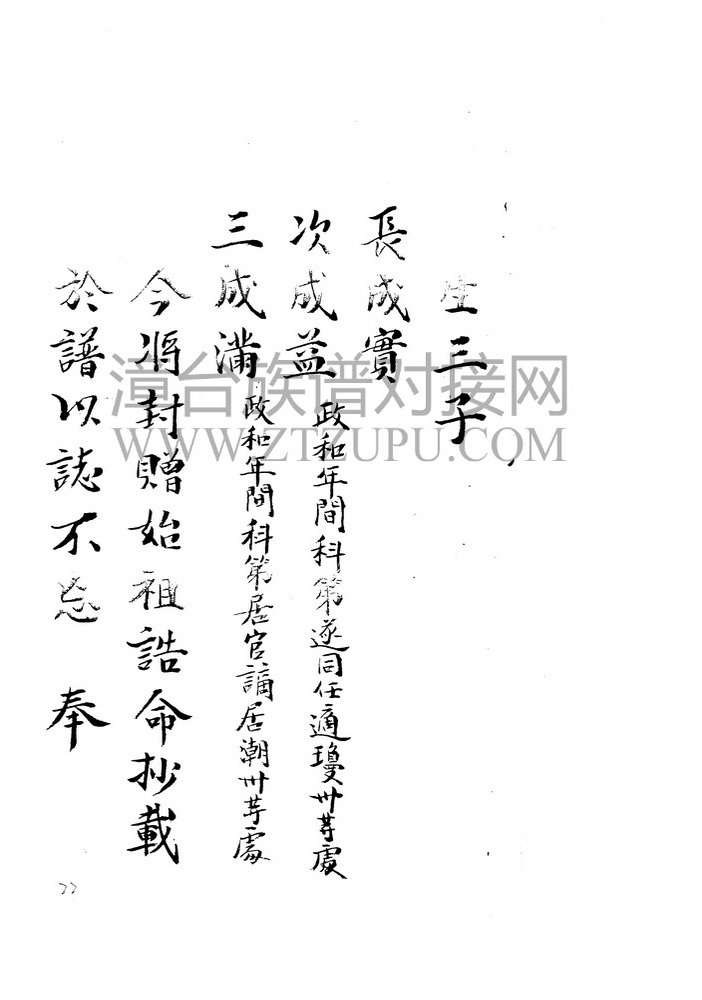 生三子
長成實
次成益 政和年間科第遂同任適瓊州等處
三成滿 政和年間科第居官謫居潮州等處
今將封贈始祖誥命抄載
於譜以誌不忘 奉
漳台族谱对接网
WWW.ZTZUPU.COM
22